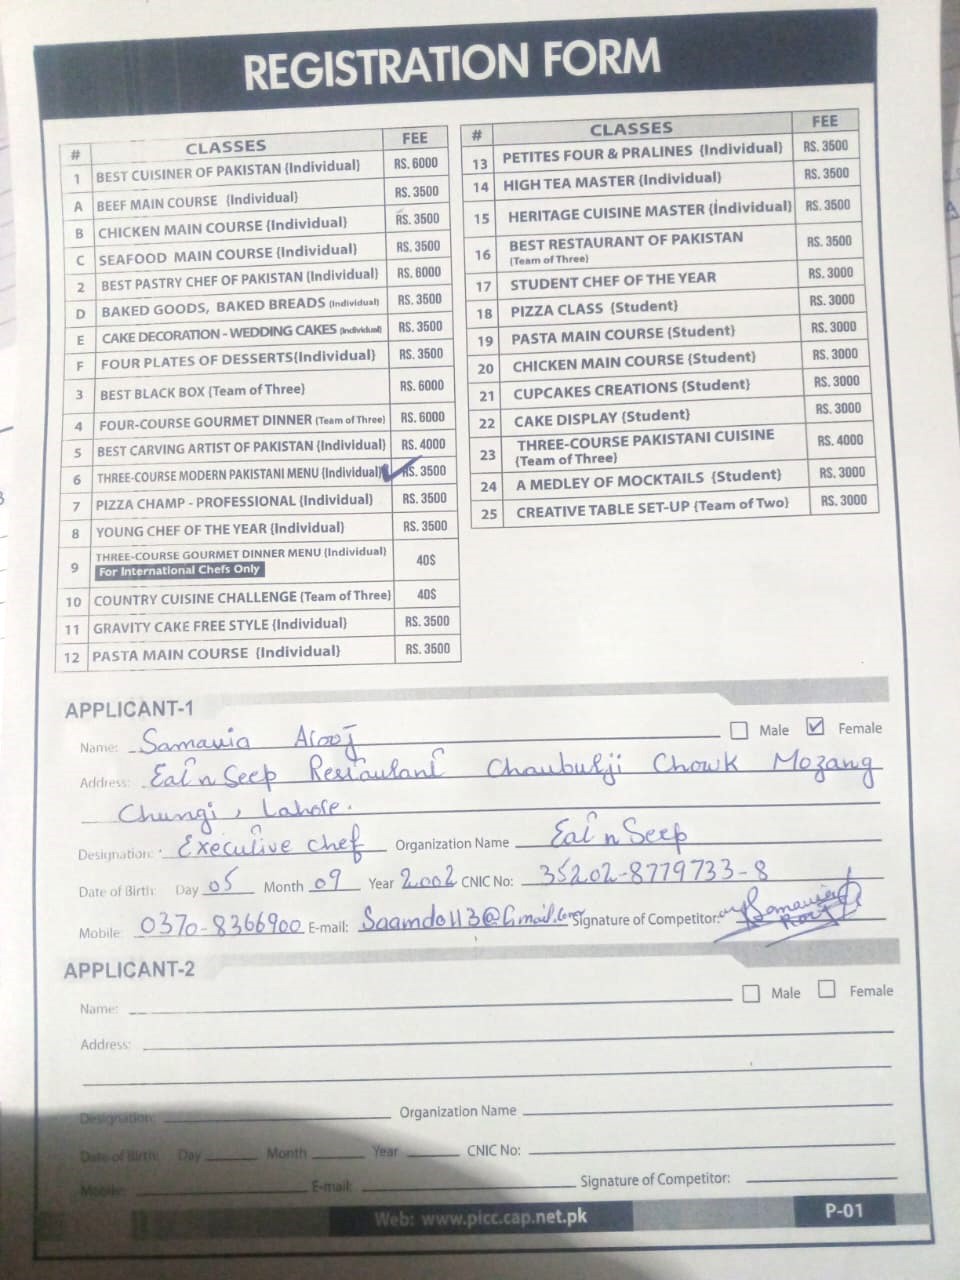 REGISTRATION FORM
# CLASSES FEE
1 BEST CUISINER OF PAKISTAN (Individual) RS. 6000
A BEEF MAIN COURSE (Individual) RS. 3500
B CHICKEN MAIN COURSE (Individual) RS. 3500
C SEAFOOD MAIN COURSE (Individual) RS. 3500
2 BEST PASTRY CHEF OF PAKISTAN (Individual) RS. 6000
D BAKED GOODS, BAKED BREADS (Individual) RS. 3500
E CAKE DECORATION - WEDDING CAKES (Individual) RS. 3500
F FOUR PLATES OF DESSERTS(Individual) RS. 3500
3 BEST BLACK BOX (Team of Three) RS. 6000
4 FOUR-COURSE GOURMET DINNER (Team of Three) RS. 6000
5 BEST CARVING ARTIST OF PAKISTAN (Individual) RS. 4000
6 THREE-COURSE MODERN PAKISTANI MENU (Individual) RS. 3500
7 PIZZA CHAMP - PROFESSIONAL (Individual) RS. 3500
8 YOUNG CHEF OF THE YEAR (Individual) RS. 3500
9 THREE-COURSE GOURMET DINNER MENU (Individual) 40$
For International Chefs Only
10 COUNTRY CUISINE CHALLENGE (Team of Three) 40$
11 GRAVITY CAKE FREE STYLE (Individual) RS. 3500
12 PASTA MAIN COURSE (Individual) RS. 3500
# CLASSES FEE
13 PETITES FOUR & PRALINES (Individual) RS. 3500
14 HIGH TEA MASTER (Individual) RS. 3500
15 HERITAGE CUISINE MASTER (Individual) RS. 3500
16 BEST RESTAURANT OF PAKISTAN RS. 3500
(Team of Three)
17 STUDENT CHEF OF THE YEAR RS. 3000
18 PIZZA CLASS (Student) RS. 3000
19 PASTA MAIN COURSE (Student) RS. 3000
20 CHICKEN MAIN COURSE (Student) RS. 3000
21 CUPCAKES CREATIONS (Student) RS. 3000
22 CAKE DISPLAY (Student) RS. 3000
23 THREE-COURSE PAKISTANI CUISINE RS. 4000
(Team of Three)
24 A MEDLEY OF MOCKTAILS (Student) RS. 3000
25 CREATIVE TABLE SET-UP (Team of Two) RS. 3000
APPLICANT-1
Name: Samavia Arooj Male Female
Address: Eat n Seep Restaurant Chauburji Chowk Mozang
Chungi, Lahore.
Designation: Executive chef Organization Name Eat n Seep
Date of Birth: Day 05 Month 09 Year 2002 CNIC No: 35202-8779733-8
Mobile: 0370-8366900 E-mail: Saamdo113@Gmail.com Signature of Competitor: Samavia
APPLICANT-2
Name: Male Female
Address:
Designation: Organization Name
Date of Birth: Day Month Year CNIC No:
Mobile: E-mail: Signature of Competitor:
Web: www.picc.cap.net.pk P-01